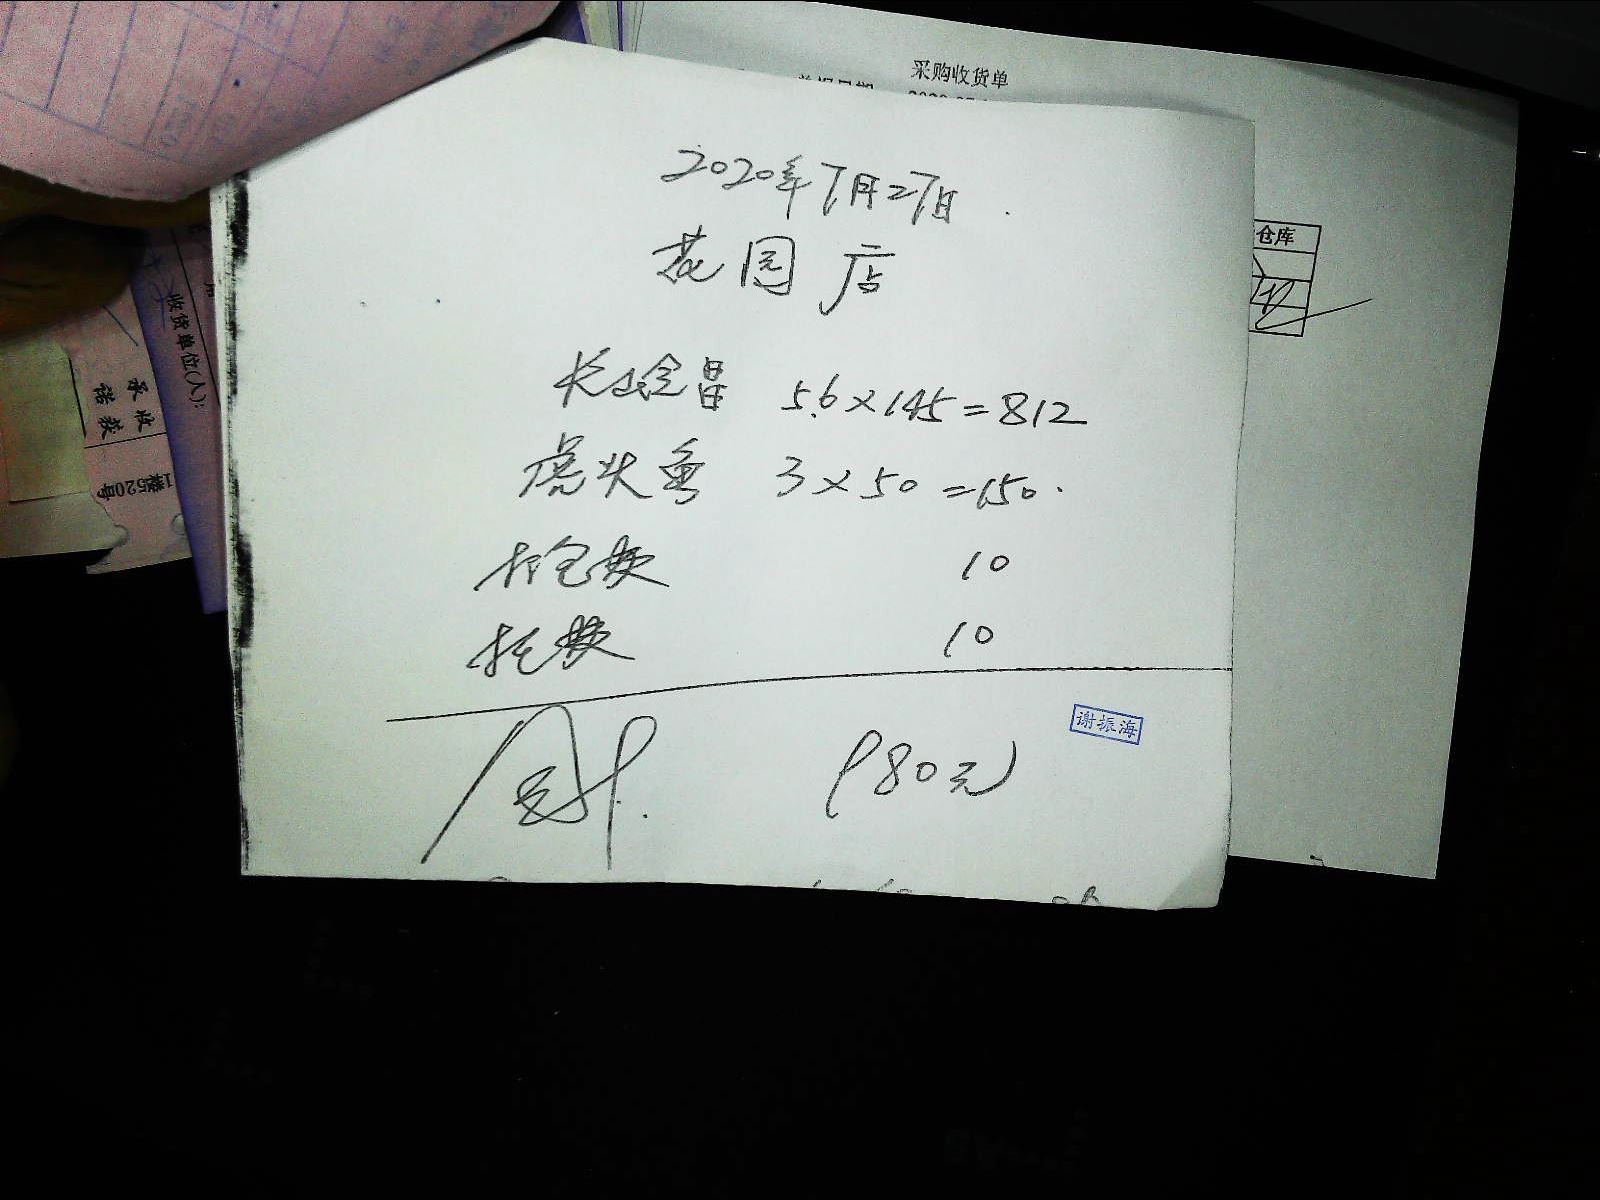 采购收货单
2020年7月27日
花园店
5.6×145=812
虎头鱼 3×50=150.
打包费 10
托费 10
谢振海
980元
仓库
收货单位(人):
承诺
收获
1楼520号